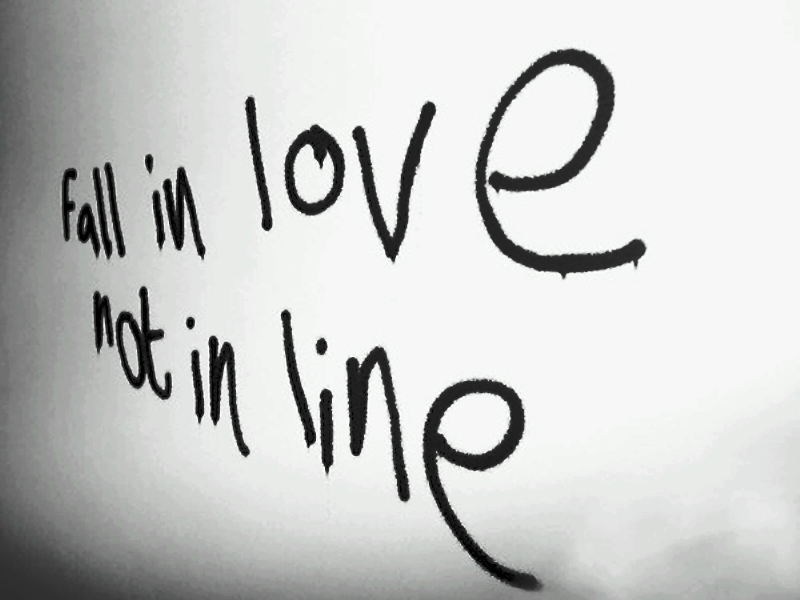 fall in love
not in line